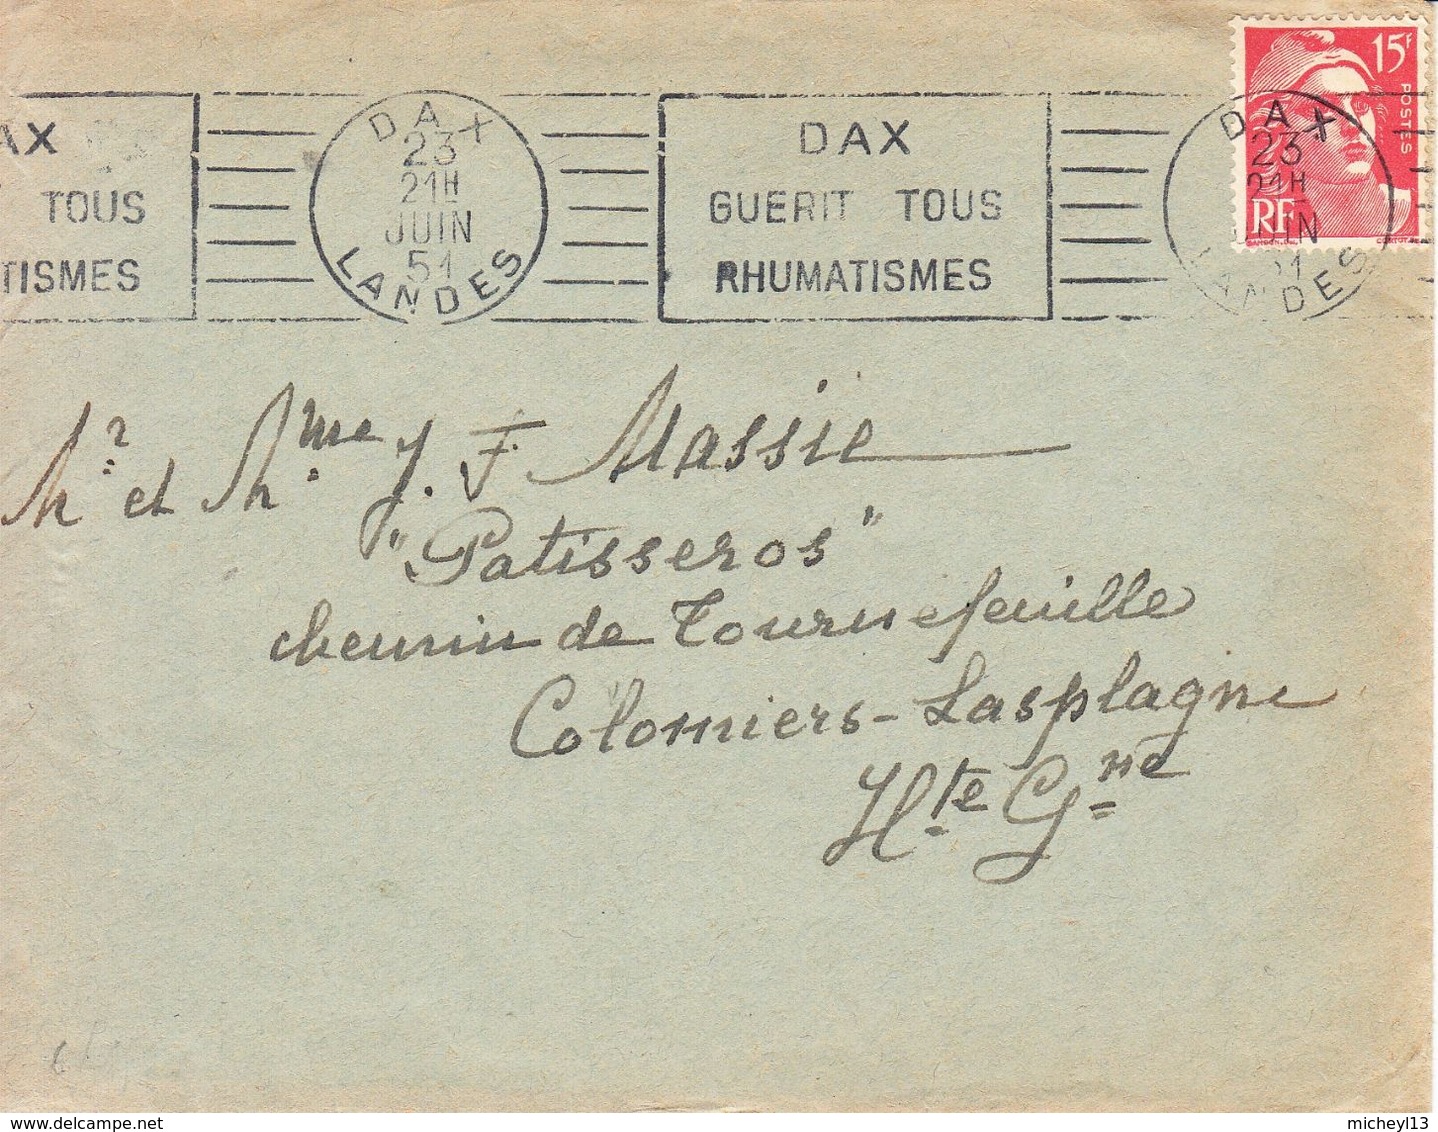 DAX
TOUS
TISMES
DAX
23
21H
JUIN
51
LANDES
DAX
GUERIT TOUS
RHUMATISMES
15F
POSTES
RF
DAX
23
21H
JUIN
51
LANDES
Mr et Mme J. F. Massie
"Patisseros"
chemin de Tournefeuille
Colomiers-Lasplagne
Hte Gne
delcampe.net
micheyl13